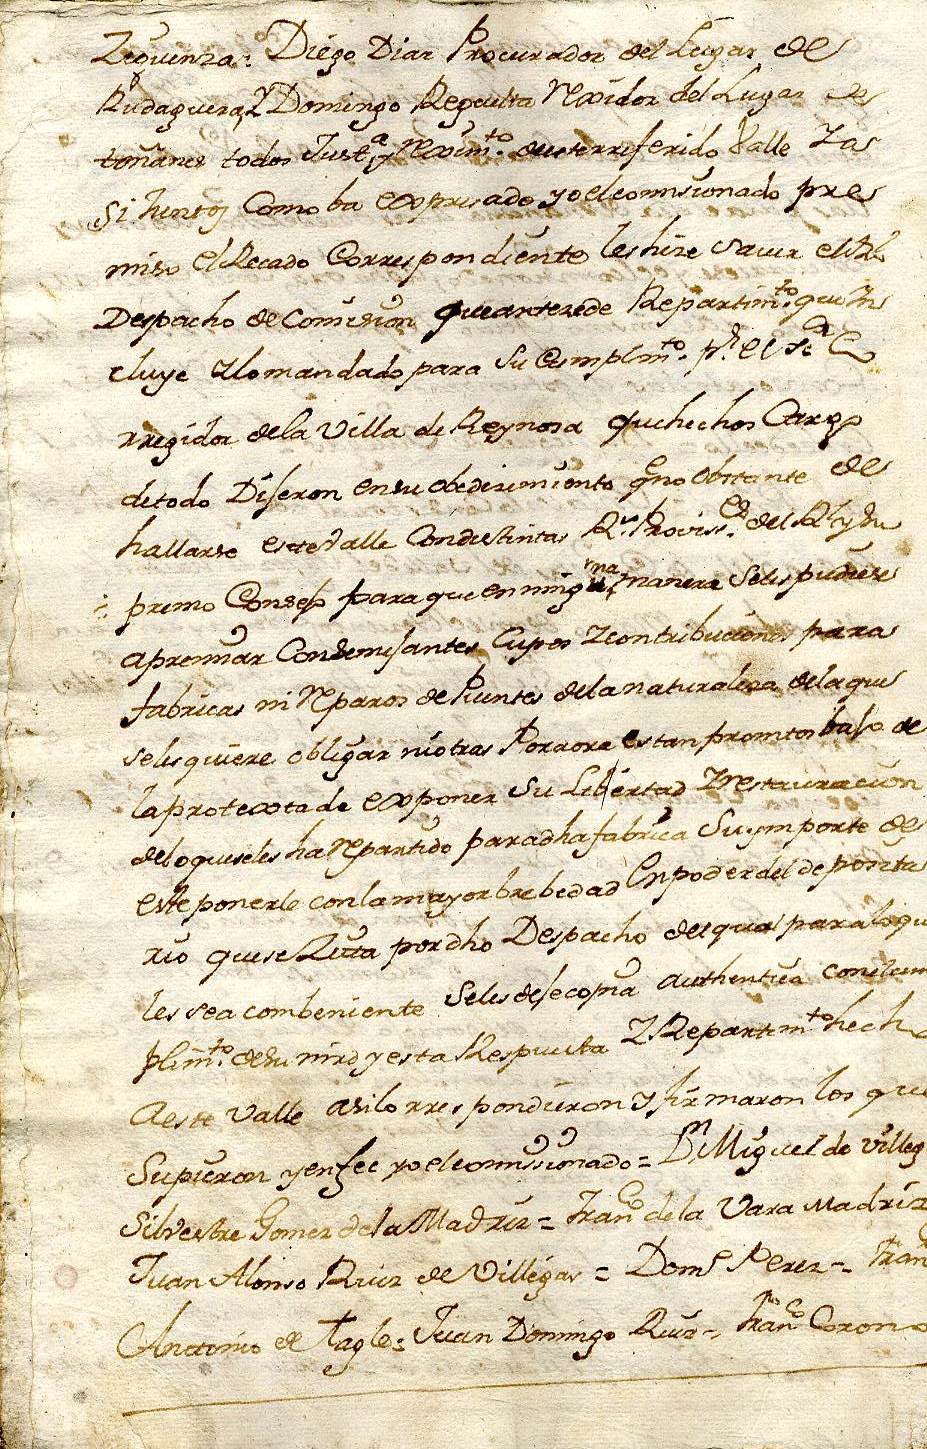 Zeguenza: Diego Diaz Procurador del Lugar de
Rudaguera, Y Domingo Regulta Rexidor del Lugar de
toñanes todos Justª y Reximto. deesterreferido Valle Y as
si Juntos Como ba expresado yo el comisionado pre
miso el Recado Correspondiente les hize saver el Rl
Despacho de Comision que antezede Repartimto. que In
cluye Y lo mandado para su Cumplimto. pr. el Sr. Co
rregidor dela Villa de Reynosa que hechos Cargo
de todo Dijeron en su obedecimiento qe no obstante de
hallarse este Valle Con distintas Rs. Provisses. del Rl y Su
premo Consejo para que en ninguna manera se les pudiese
apremiar Con semejantes Cupos Y contribuciones para
fabricas ni Reparos de Puentes dela naturaleza dela que
se les quiere obligar ni otras Por aora estan promptos bajo de
la protexta de exponer su Libertad Y restauracion
delo que se les ha Repartido para dha fabrica Su ymporte de
este ponerle con la mayor brebedad En poder del deposita
rio que se Zita por dho Despacho del qual para lo qu
les sea combeniente se les deje copia authentica con el cum
plimto. de su mrd y esta Respuesta Y Repartimto hecho
A este Valle asi lo rrespondieron y firmaron los que
Supieron y en fee yo el comissionado = Dn Miguel de Villeg
Silvestre Gomez de la Madriz = Franco de la Vara Madriz
Juan Alonso Ruiz de Villegas = Domo Perez = Fran
Antonio de Tagle = Juan Domingo Ruiz = Franco Corona